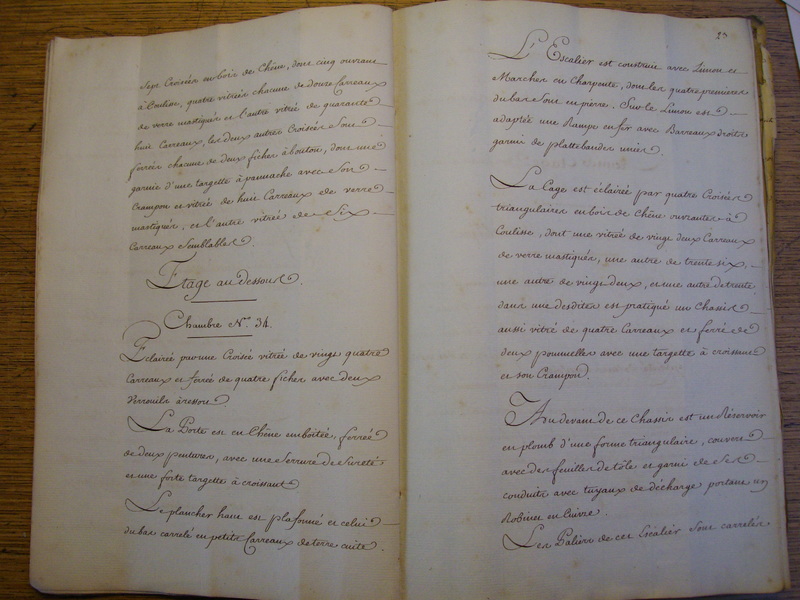 Sept Croisées en bois de Chêne, dont cinq ouvrant
à Coulisse, quatre vitrées chacune de douze Carreaux
de verre mastiqués et l'autre vitrée de quarante
huit Carreaux, les deux autres Croisées sont
ferrées chacune de deux fiches à bouton, dont une
garnie d'une targette à pannache avec son
Crampon et vitrée de huit Carreaux de verre
mastiqués, et l'autre vitrée de Six
Carreaux Semblables.
Etage au dessous.
Chambre N.º 34.
Eclairée par une Croisée vitrée de vingt quatre
Carreaux et ferrée de quatre fiches avec deux
Verrouils à ressort.
La Porte est en Chêne emboîtée, ferrée
de deux pentures, avec une Serrure de Sureté
et une forte targette à croissant
Le plancher haut est plafonné et celui
du bas carrelé en petits Carreaux de terre cuite.
23
L'Escalier est construit avec Limon et
Marches en Charpente, dont les quatre premieres
du bas sont en pierre. Sur le Limon est
adaptée une Rampe en fer avec Barreaux droits
garnie de plattebandes unies.
La Cage est éclairée par quatre Croisées
triangulaires en bois de Chêne ouvrantes à
Coulisse, dont une vitrée de vingt deux Carreaux
de verre mastiqués, une autre de trente six,
une autre de vingt deux, et une autre de trente
dans une desdites est pratiqué un Chassis
aussi vitré de quatre Carreaux et ferré de
deux poumelles avec une targette à croissant
et son Crampon.
Au devant de ce Chassis est un Réservoir
en plomb d'une forme triangulaire, couvert
avec des feuilles de tôle et garni de Ses
conduits avec tuyaux de décharge portant un
Robinet en Cuivre.
Les Paliers de cet Escalier Sont carrelés